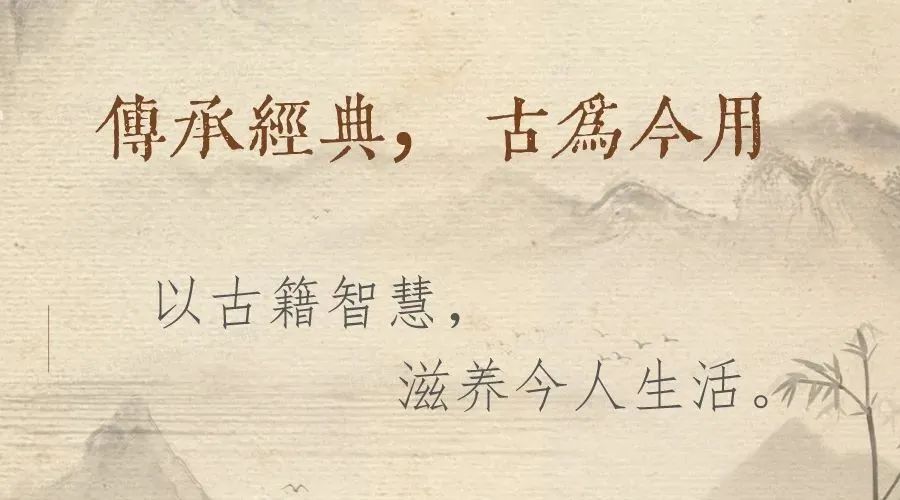 傳承經典，古爲今用
以古籍智慧，
滋养今人生活。